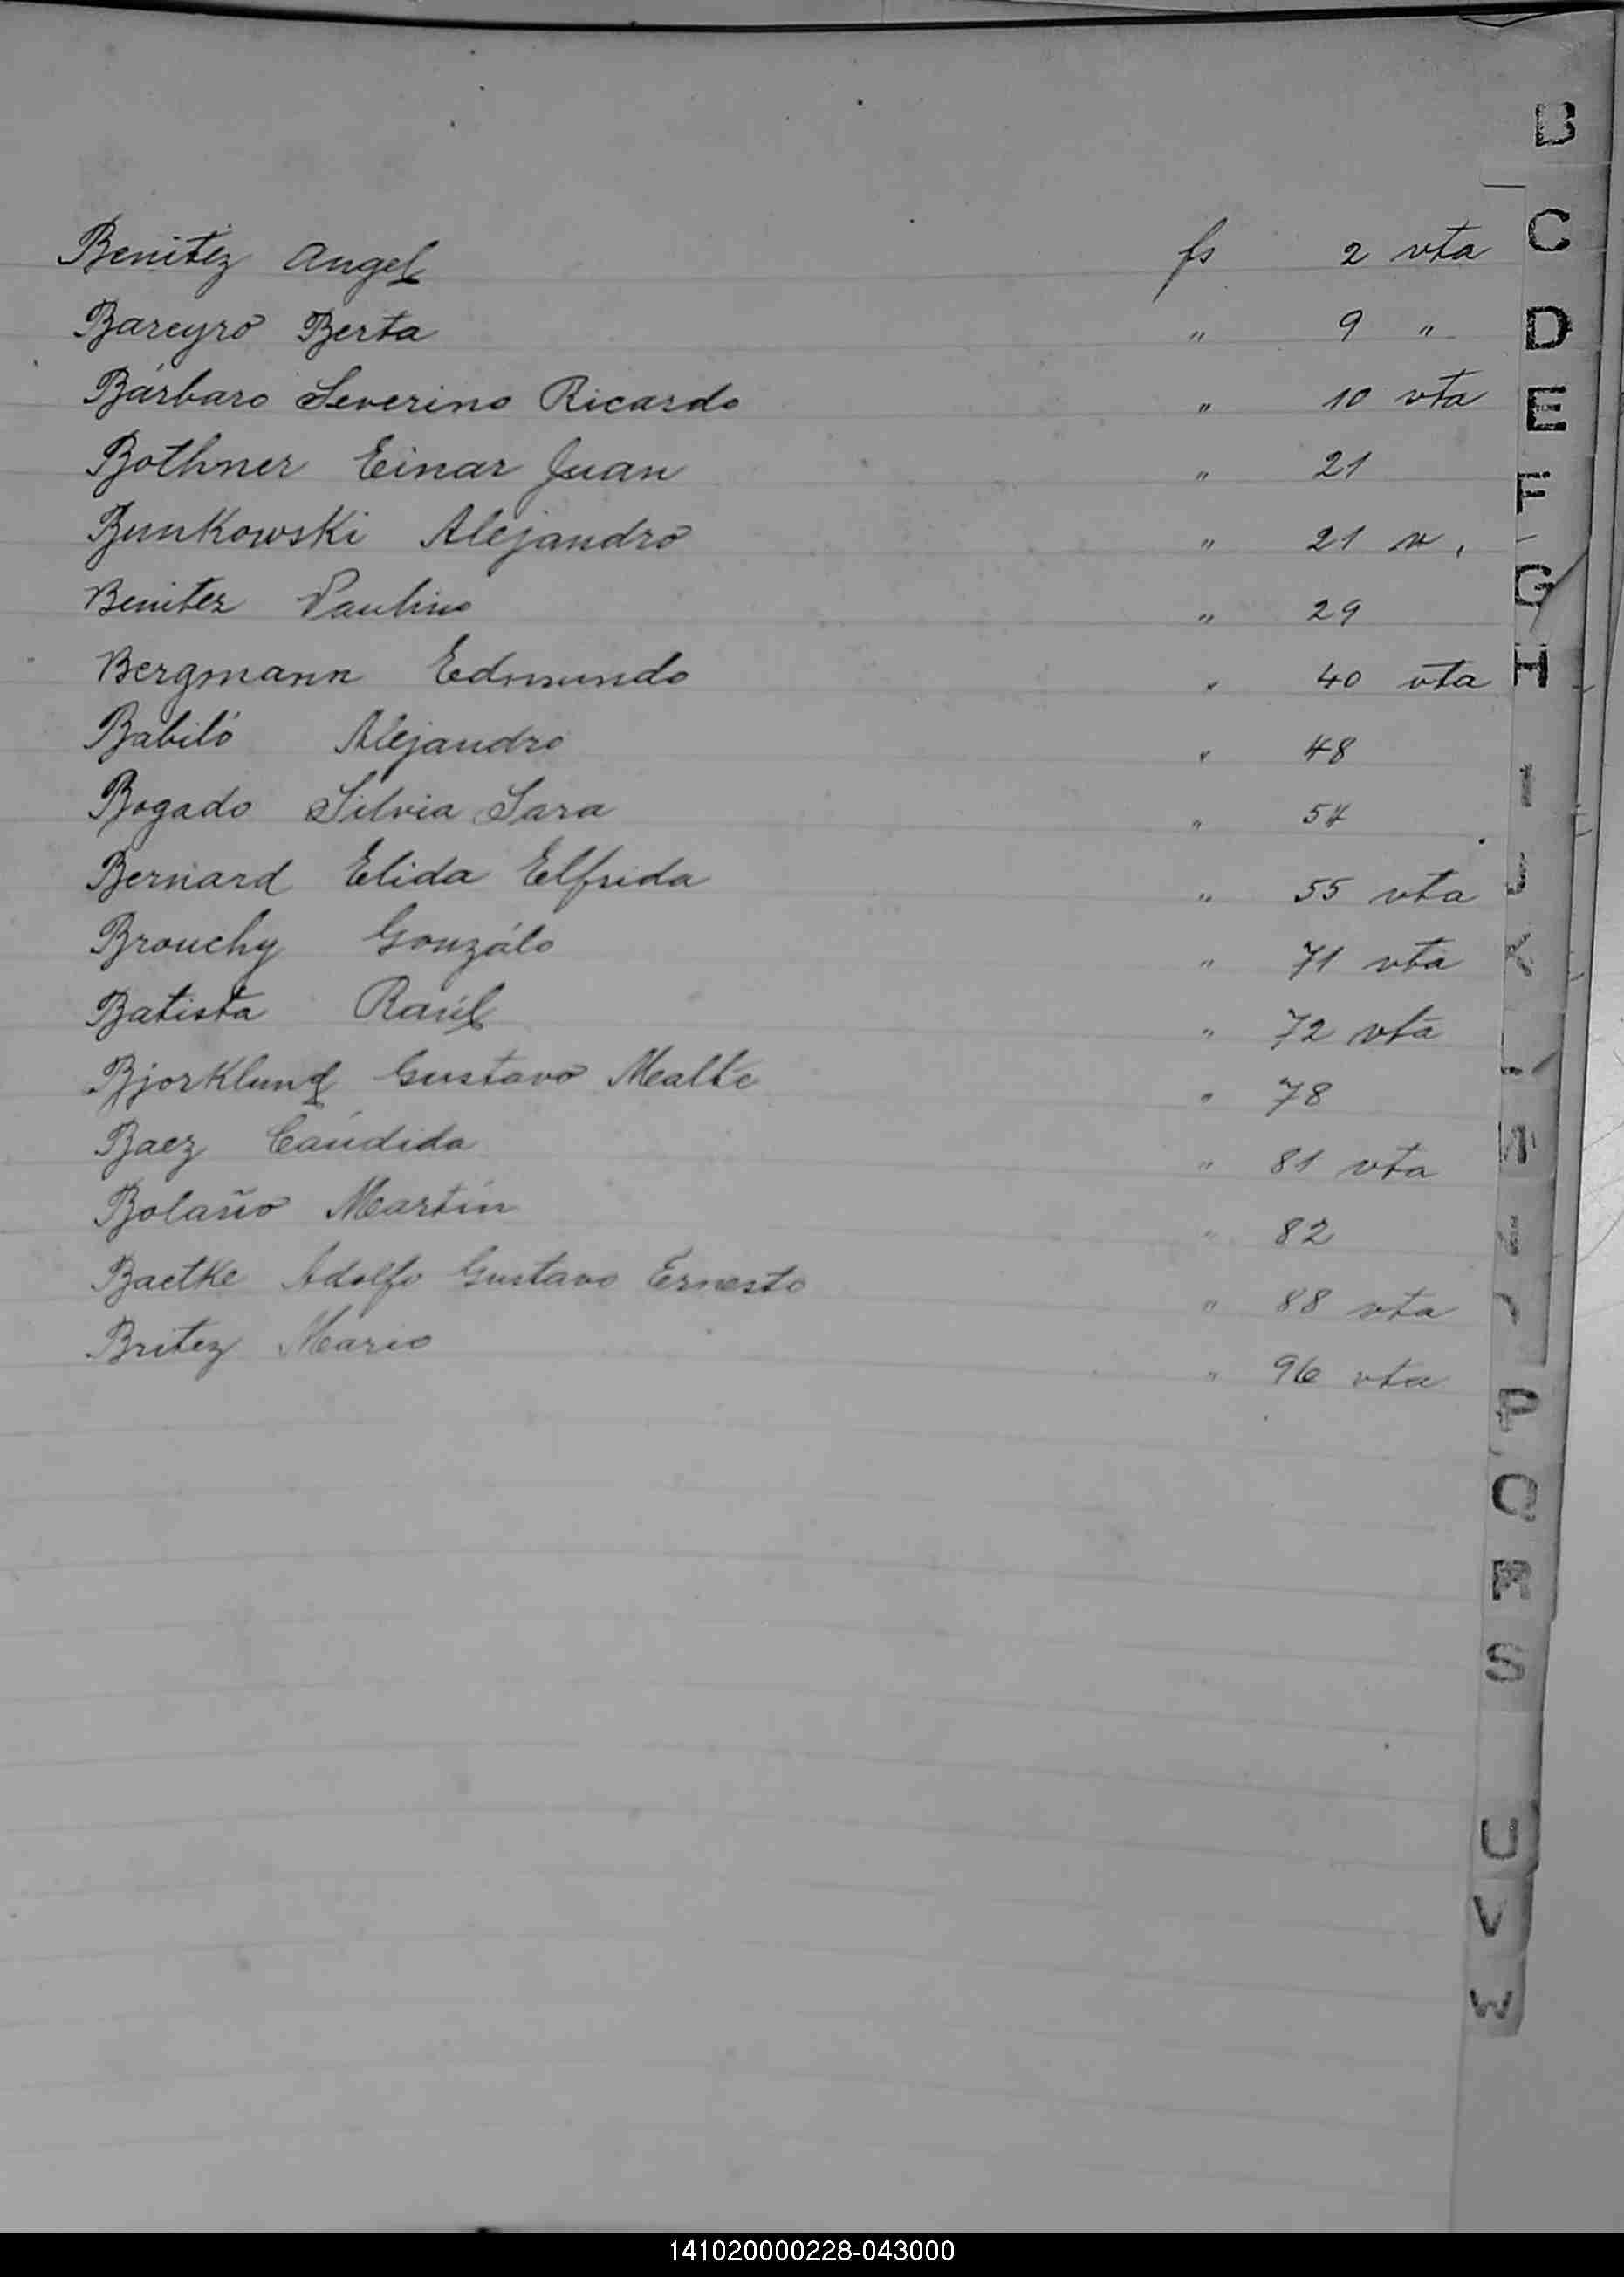 B
Benitez Angel fs 2 vta
Bareyro Berta " 9 "
Bárbaro Severino Ricardo " 10 vta
Bothner Einar Juan " 21
Bunkowski Alejandro " 21 v.
Benitez Paulino " 29
Bergmann Edmundo " 40 vta
Babiló Alejandro " 48
Bogado Silvia Sara " 54
Bernard Elida Elfrida " 55 vta
Brouchy Gonzálo " 71 vta
Batista Raúl " 72 vta
Bjorklund Gustavo Malte " 78
Baez Cándida " 81 vta
Bolaño Martín " 82
Baetke Adolfo Gustavo Ernesto " 88 vta
Britez Mario " 96 vta
C
D
E
F
G
H
I
J
P
Q
R
S
U
V
W
141020000228-043000